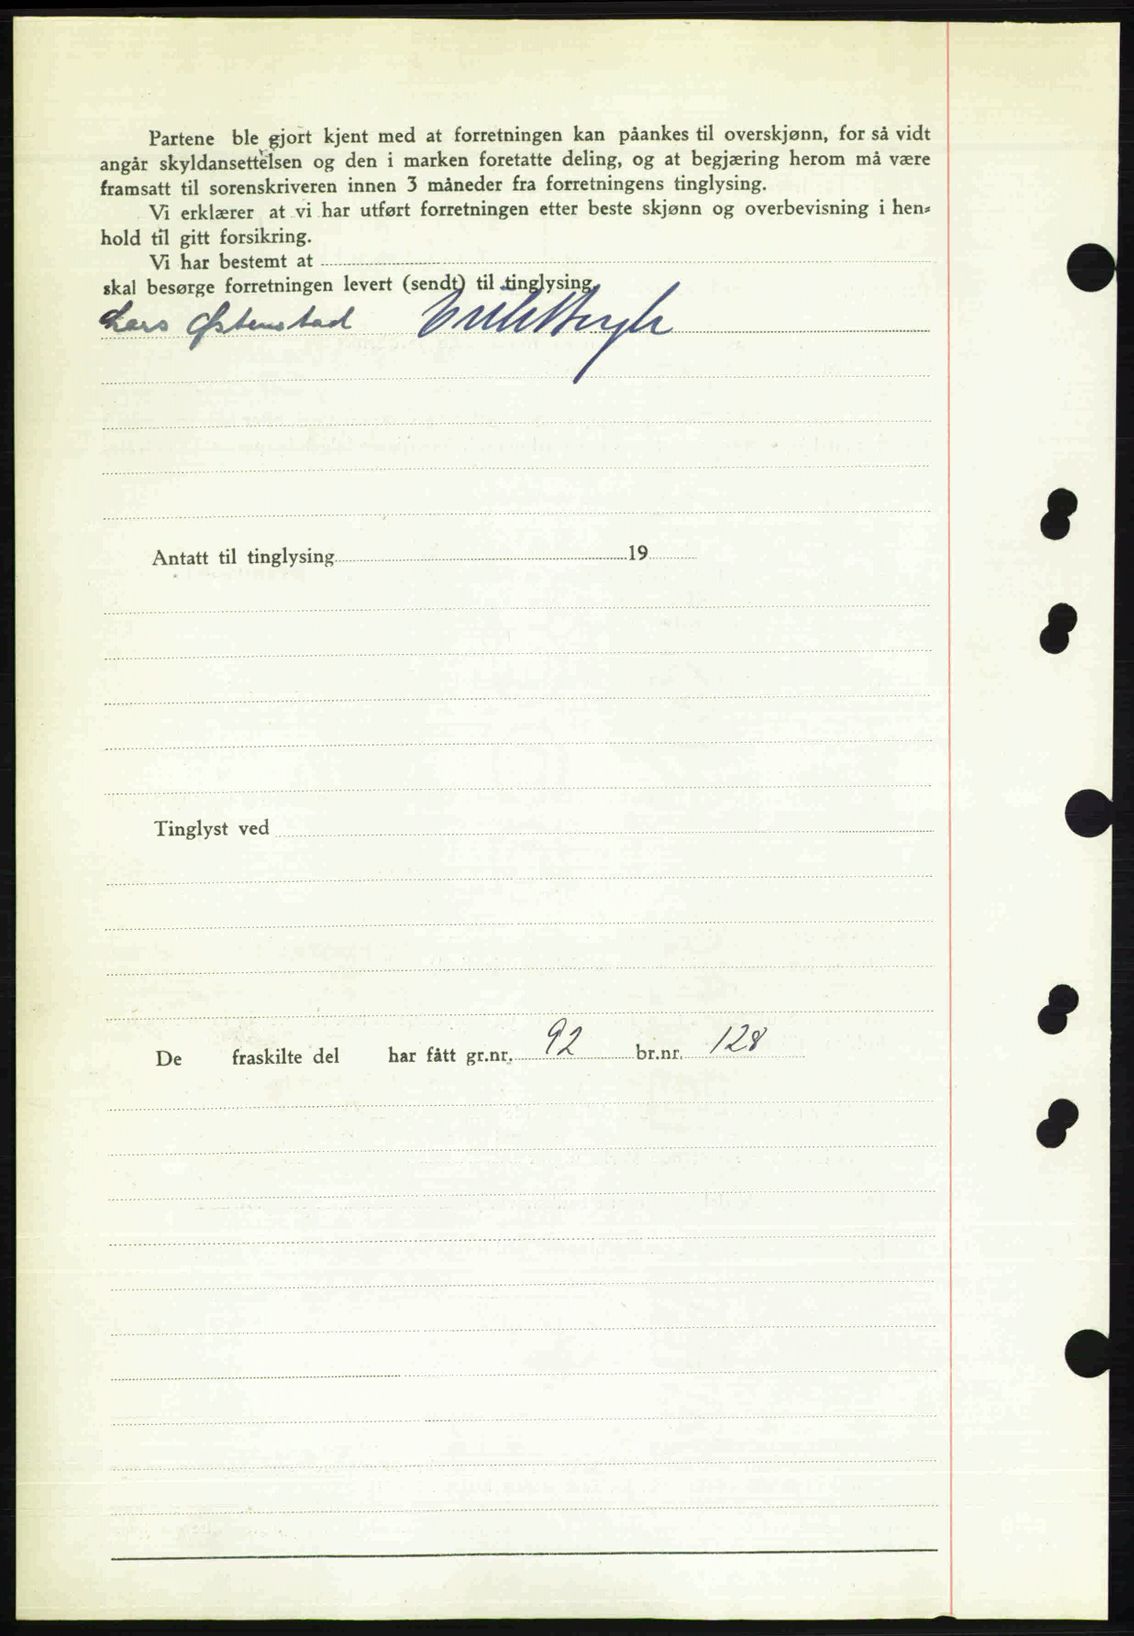 Partene ble gjort kjent med at forretningen kan påankes til overskjønn, for så vidt
angår skyldansettelsen og den i marken foretatte deling, og at begjæring herom må være
framsatt til sorenskriveren innen 3 måneder fra forretningens tinglysing.
Vi erklærer at vi har utført forretningen etter beste skjønn og overbevisning i hen-
hold til gitt forsikring.
Vi har bestemt at
skal besørge forretningen levert (sendt) til tinglysing.
Lars Østenstad
Antatt til tinglysing 19
Tinglyst ved
De fraskilte del har fått gr.nr. 92 br.nr. 128